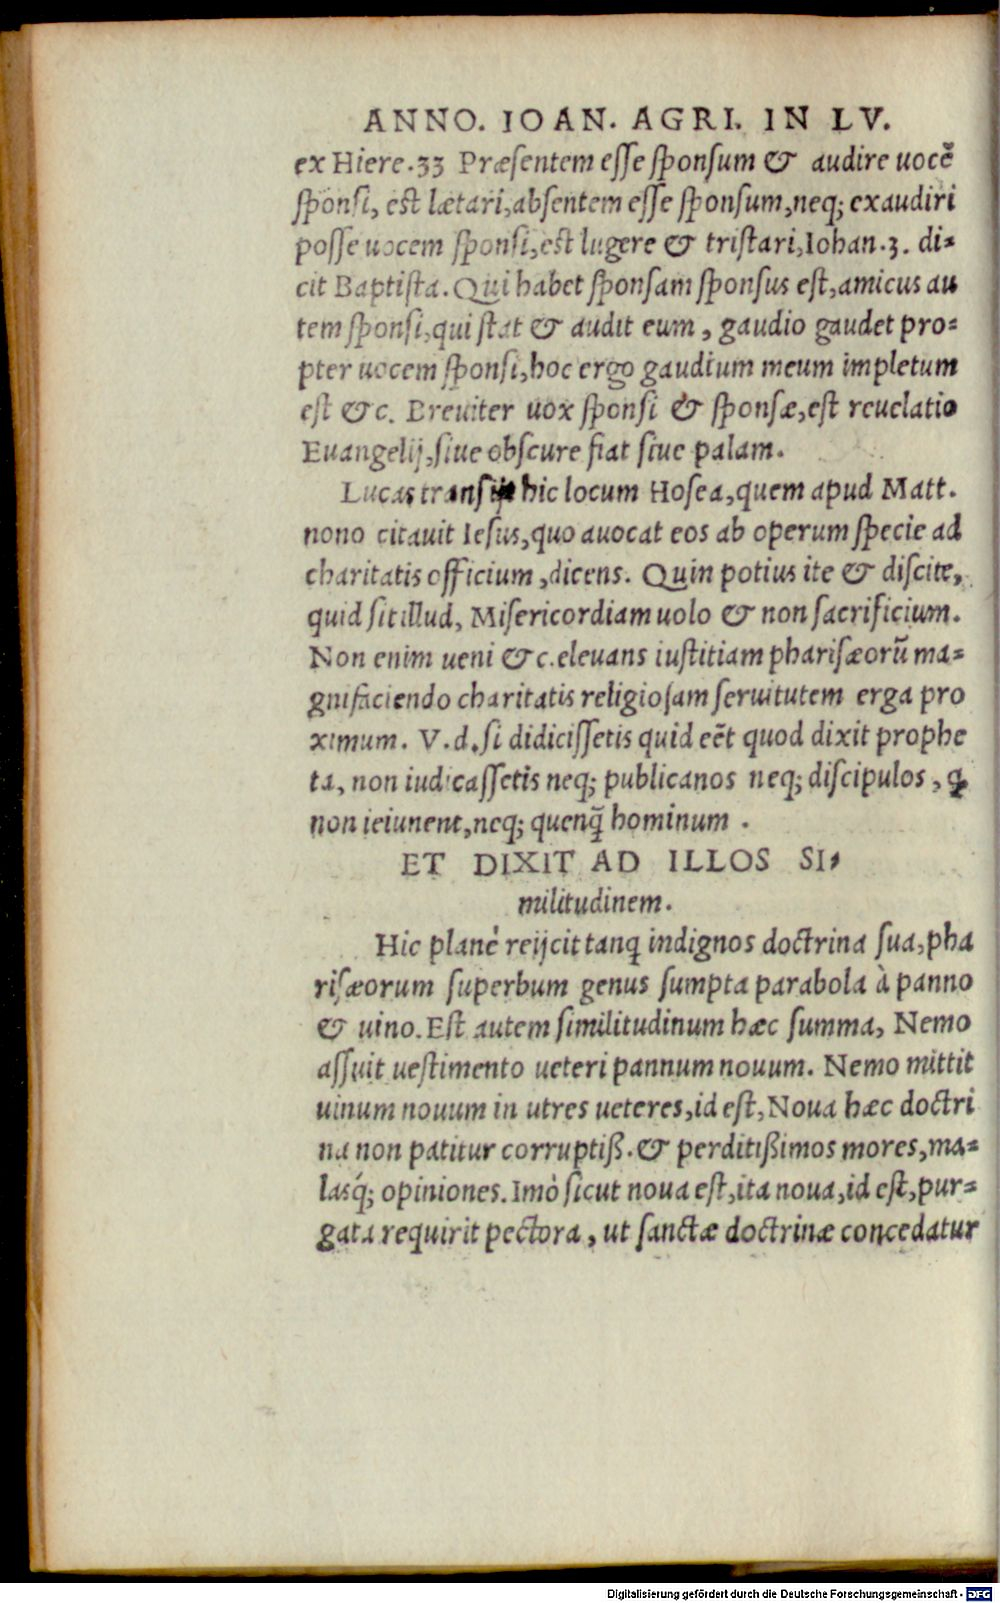 ANNO. IOAN. AGRI. IN LV.
ex Hiere.33 Præsentem esse sponsum & audire uocẽ
sponsi, est lætari,absentem esse sponsum,neq; exaudiri
posse uocem sponsi,est lugere & tristari,Iohan.3. di=
cit Baptista.Qui habet sponsam sponsus est,amicus au
tem sponsi,qui stat & audit eum, gaudio gaudet pro=
pter uocem sponsi,hoc ergo gaudium meum impletum
est &c. Breuiter uox sponsi & sponsæ,est reuelatio
Euangelij,siue obscure fiat siue palam.
Lucas transijt hic locum Hosea,quem apud Matt.
nono citauit Iesus,quo auocat eos ab operum specie ad
charitatis officium,dicens. Quin potius ite & discite,
quid sit illud, Misericordiam uolo & non sacrificium.
Non enim ueni &c.eleuans iustitiam pharisæorũ ma=
gnifaciendo charitatis religiosam seruitutem erga pro
ximum. V.d.si didicissetis quid eẽt quod dixit prophe
ta, non iudicassetis neq; publicanos neq; discipulos, ꝙ
non ieiunent,neq; quenq̃ hominum.
ET DIXIT AD ILLOS SI=
militudinem.
Hic planè reijcit tanq̃ indignos doctrina sua,pha
risæorum superbum genus sumpta parabola à panno
& uino.Est autem similitudinum hæc summa, Nemo
assuit uestimento ueteri pannum nouum. Nemo mittit
uinum nouum in utres ueteres,id est,Noua hæc doctri
na non patitur corruptiß.& perditißimos mores,ma=
lasq́; opiniones.Imò sicut noua est,ita noua,id est,pur=
gata requirit pectora, ut sanctæ doctrinæ concedatur
Digitalisierung gefördert durch die Deutsche Forschungsgemeinschaft - DFG